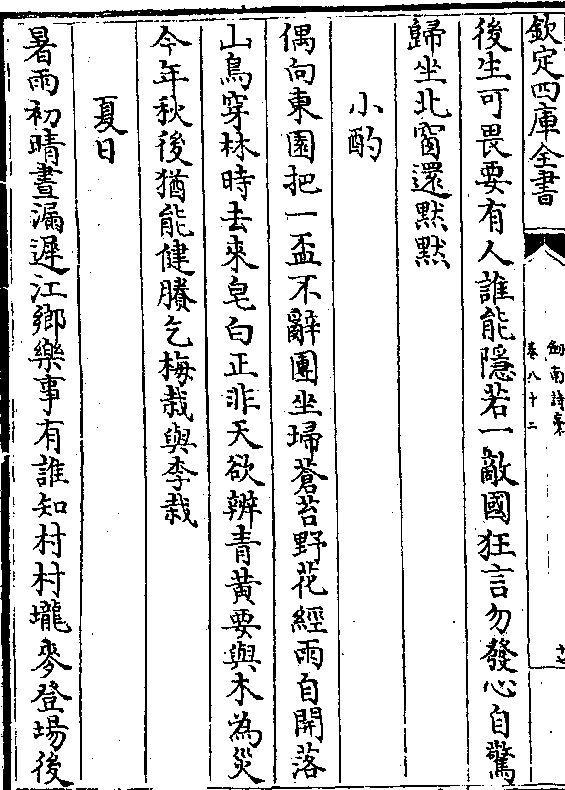 欽定四庫全書
劍南詩稾
卷八十二
後生可畏要有人誰能隱若一敵國狂言勿發心自驚
歸坐北窗還黙黙
小酌
偶向東園把一盃不辭團坐埽蒼苔野花經雨自開落
山鳥穿林時去來皂白正非天欲辨青黃要與木為災
今年秋後猶能健賸乞梅栽與李栽
夏日
暑雨初晴晝漏遲江鄉樂事有誰知村村壠麥登場後